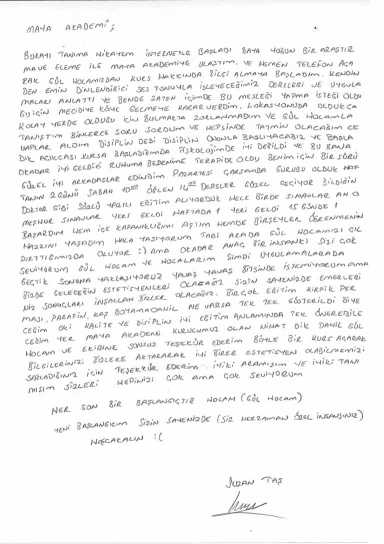 MAYA AKADEMİ;
BURAYI TANIMA HİKAYEM İNTERNETLE BAŞLADI BAYA YOĞUN BİR ARAŞTIR
MAVE ELEME İLE MAYA AKADEMİYE ULAŞTIM. VE HEMEN TELEFON AÇA
RAK GÜL HOCAMIZDAN KURS HAKKINDA BİLGİ ALMAYA BAŞLADIM. KENDİN
DEN EMİN DİNLENDİRİCİ SES TONUYLA İŞLEYECEĞİMİZ DERSLERİ VE UYGULA
MALARI ANLATTI VE BENDE ZATEN İÇİMDE BU MESLEĞİ YAPMA İSTEĞİ OLDU
ĞU İÇİN MECİDİYE KÖYE GELMEYE KARAR VERDİM. LOKASYONUNDA OLDUKÇA
KOLAY YERDE OLDUĞU İÇİN BULMAKTA ZORLANMADIM VE GÜL HOCAMLA
TANIŞTIM BİNLERCE SORU SORDUM VE HEPSİNDE TATMİN OLACAĞIM CE
VAPLAR ALDIM DİSİPLİN DEDİ DİSİPLİN OKULA BAŞLIYACAĞIZ VE BAŞLA
DIK AÇIKCASI KURSA BAŞLADIĞIMDA PSİKOLOJİMDE İYİ DEĞİLDİ VE BU BANA
OKADAR İYİ GELDİKİ RUHUMA BEDENİME TERAPİDE OLDU BENİM İÇİN BİR SÜRÜ
GÜZEL İYİ ARKADAŞLAR EDİNDİM PAZARTESİ ÇARŞAMBA GURUBU OLDUK HAF
TANIN 2 GÜNÜ SABAH 10:00 ÖĞLEN 14:00 DERSLER GÜZEL GEÇİYOR BİLDİĞİN
DOKTOR GİBİ SÖZLÜ YAZILI EĞİTİM ALIYORDUK HELE BİRDE SINAVLAR AH O
MEŞHUR SINAVLAR YERİ GELDİ HAFTADA 1 YERİ GELDİ 15 GÜNDE 1
BAŞARDIM HEM İÇE KAPANIKLIĞIMI AŞTIM HEMDE BİRŞEYLER ÖĞRENMENİN
HAZZINI YAŞADIM HALA YAŞIYORUM TABİ ARADA GÜL HOCAMIZI ÇIL
DIRTTIĞIMIZDA OLUYOR :) AMA OKADAR ANAÇ BİR İNSANKİ SİZİ ÇOK
SEVİYORUM GÜL HOCAM VE HOCALARIM ŞİMDİ UYGULAMALARADA
GEÇTİK SONUNA YAKLAŞIYORUZ YAVAŞ YAVAŞ BİTSİNDE İSTEMİYORUM AMA
BİZDE GELECEĞİN ESTETİSYENLERİ OLACAĞIZ SİZİN SAYENİZDE EMEKLERİ
NİZ SONUÇLARI İNŞALLAH BİZLER OLACAĞIZ. BİRÇOK EĞİTİM KİRPİK PER
MASI, PARAFİN, KAŞ BOYAMACANLI NE VARSA TEK TEK GÖSTERİLDİ DİYE
CEĞİM OKİ KALİTE VE DİSİPLİN İYİ EĞİTİM ANLAMINDA TEK ÖNEREBİLE
CEĞİM YER MAYA AKADEMİ KURUCUMUZ OLAN NİHAT DİK DAHİL GÜL
HOCAM VE EKİBİNE SONSUZ TEŞEKKÜR EDERİM BÖYLE BİR KURS AÇARAK
BİLGİLERİNİZİ BİZLERE AKTARARAK İYİ BİRER ESTETİSYEN OLABİLMEMİZİ
SAĞLADIĞINIZ İÇİN TEŞEKKÜR EDERİM. İYİKİ ARAMIŞIM VE İYİKİ TANI
MIŞIM SİZLERİ HEPİNİZİ ÇOK AMA ÇOK SEVİYORUM
HER SON BİR BAŞLANGIÇTIR HOCAM (GÜL HOCAM)
YENİ BAŞLANGICIM SİZİN SAYENİZDE (SİZ HERZAMAN ÖZEL İNSANSINIZ)
HOŞÇAKALIN :(
TAŞ